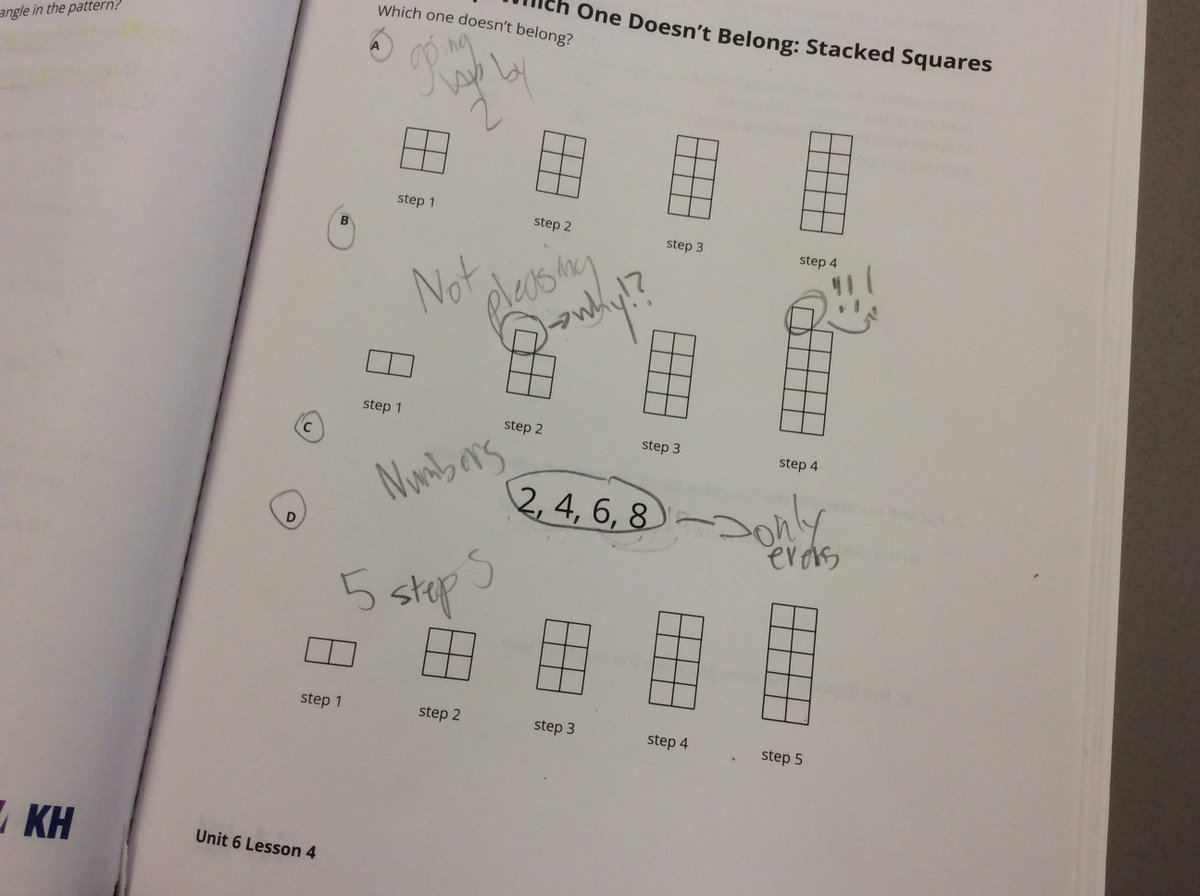 angle in the pattern?
Which One Doesn't Belong: Stacked Squares
Which one doesn't belong?
A
going
up by
2
step 1
step 2
step 3
step 4
B
Not pleasing
why!?
!!!
step 1
step 2
step 3
step 4
C
Numbers
2, 4, 6, 8
only
evens
D
5 steps
step 1
step 2
step 3
step 4
step 5
KH
Unit 6 Lesson 4